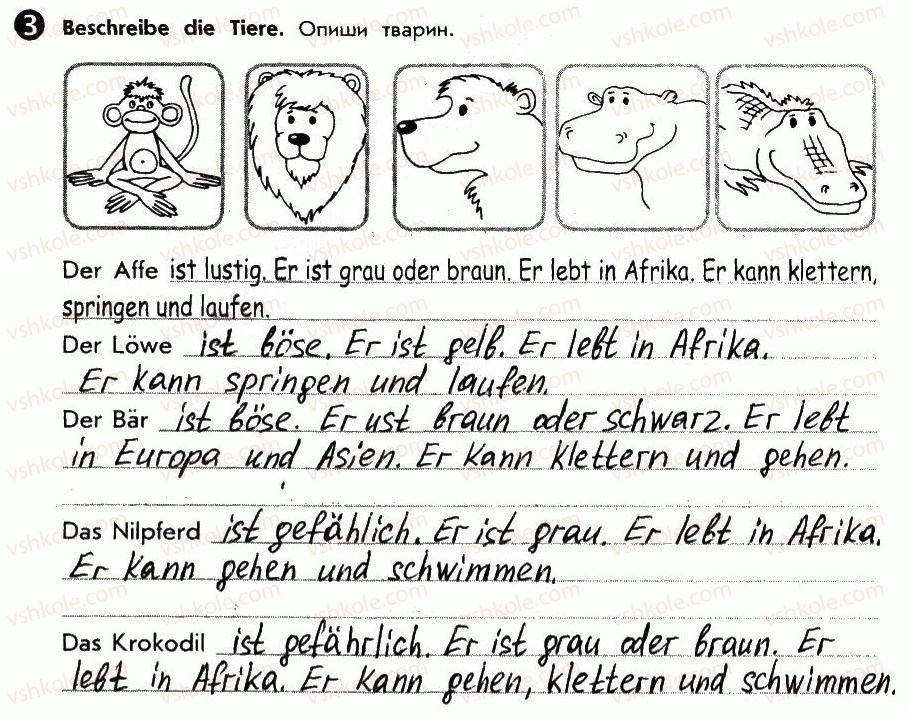 3 Beschreibe die Tiere. Опиши тварин.
Der Affe ist lustig. Er ist grau oder braun. Er lebt in Afrika. Er kann klettern,
springen und laufen.
Der Löwe ist böse. Er ist gelb. Er lebt in Afrika.
Er kann springen und laufen.
Der Bär ist böse. Er ust braun oder schwarz. Er lebt
in Europa und Asien. Er kann klettern und gehen.
Das Nilpferd ist gefählich. Er ist grau. Er lebt in Afrika.
Er kann gehen und schwimmen.
Das Krokodil ist gefährlich. Er ist grau oder braun. Er
lebt in Afrika. Er kann gehen, klettern und schwimmen.
vshkole.com